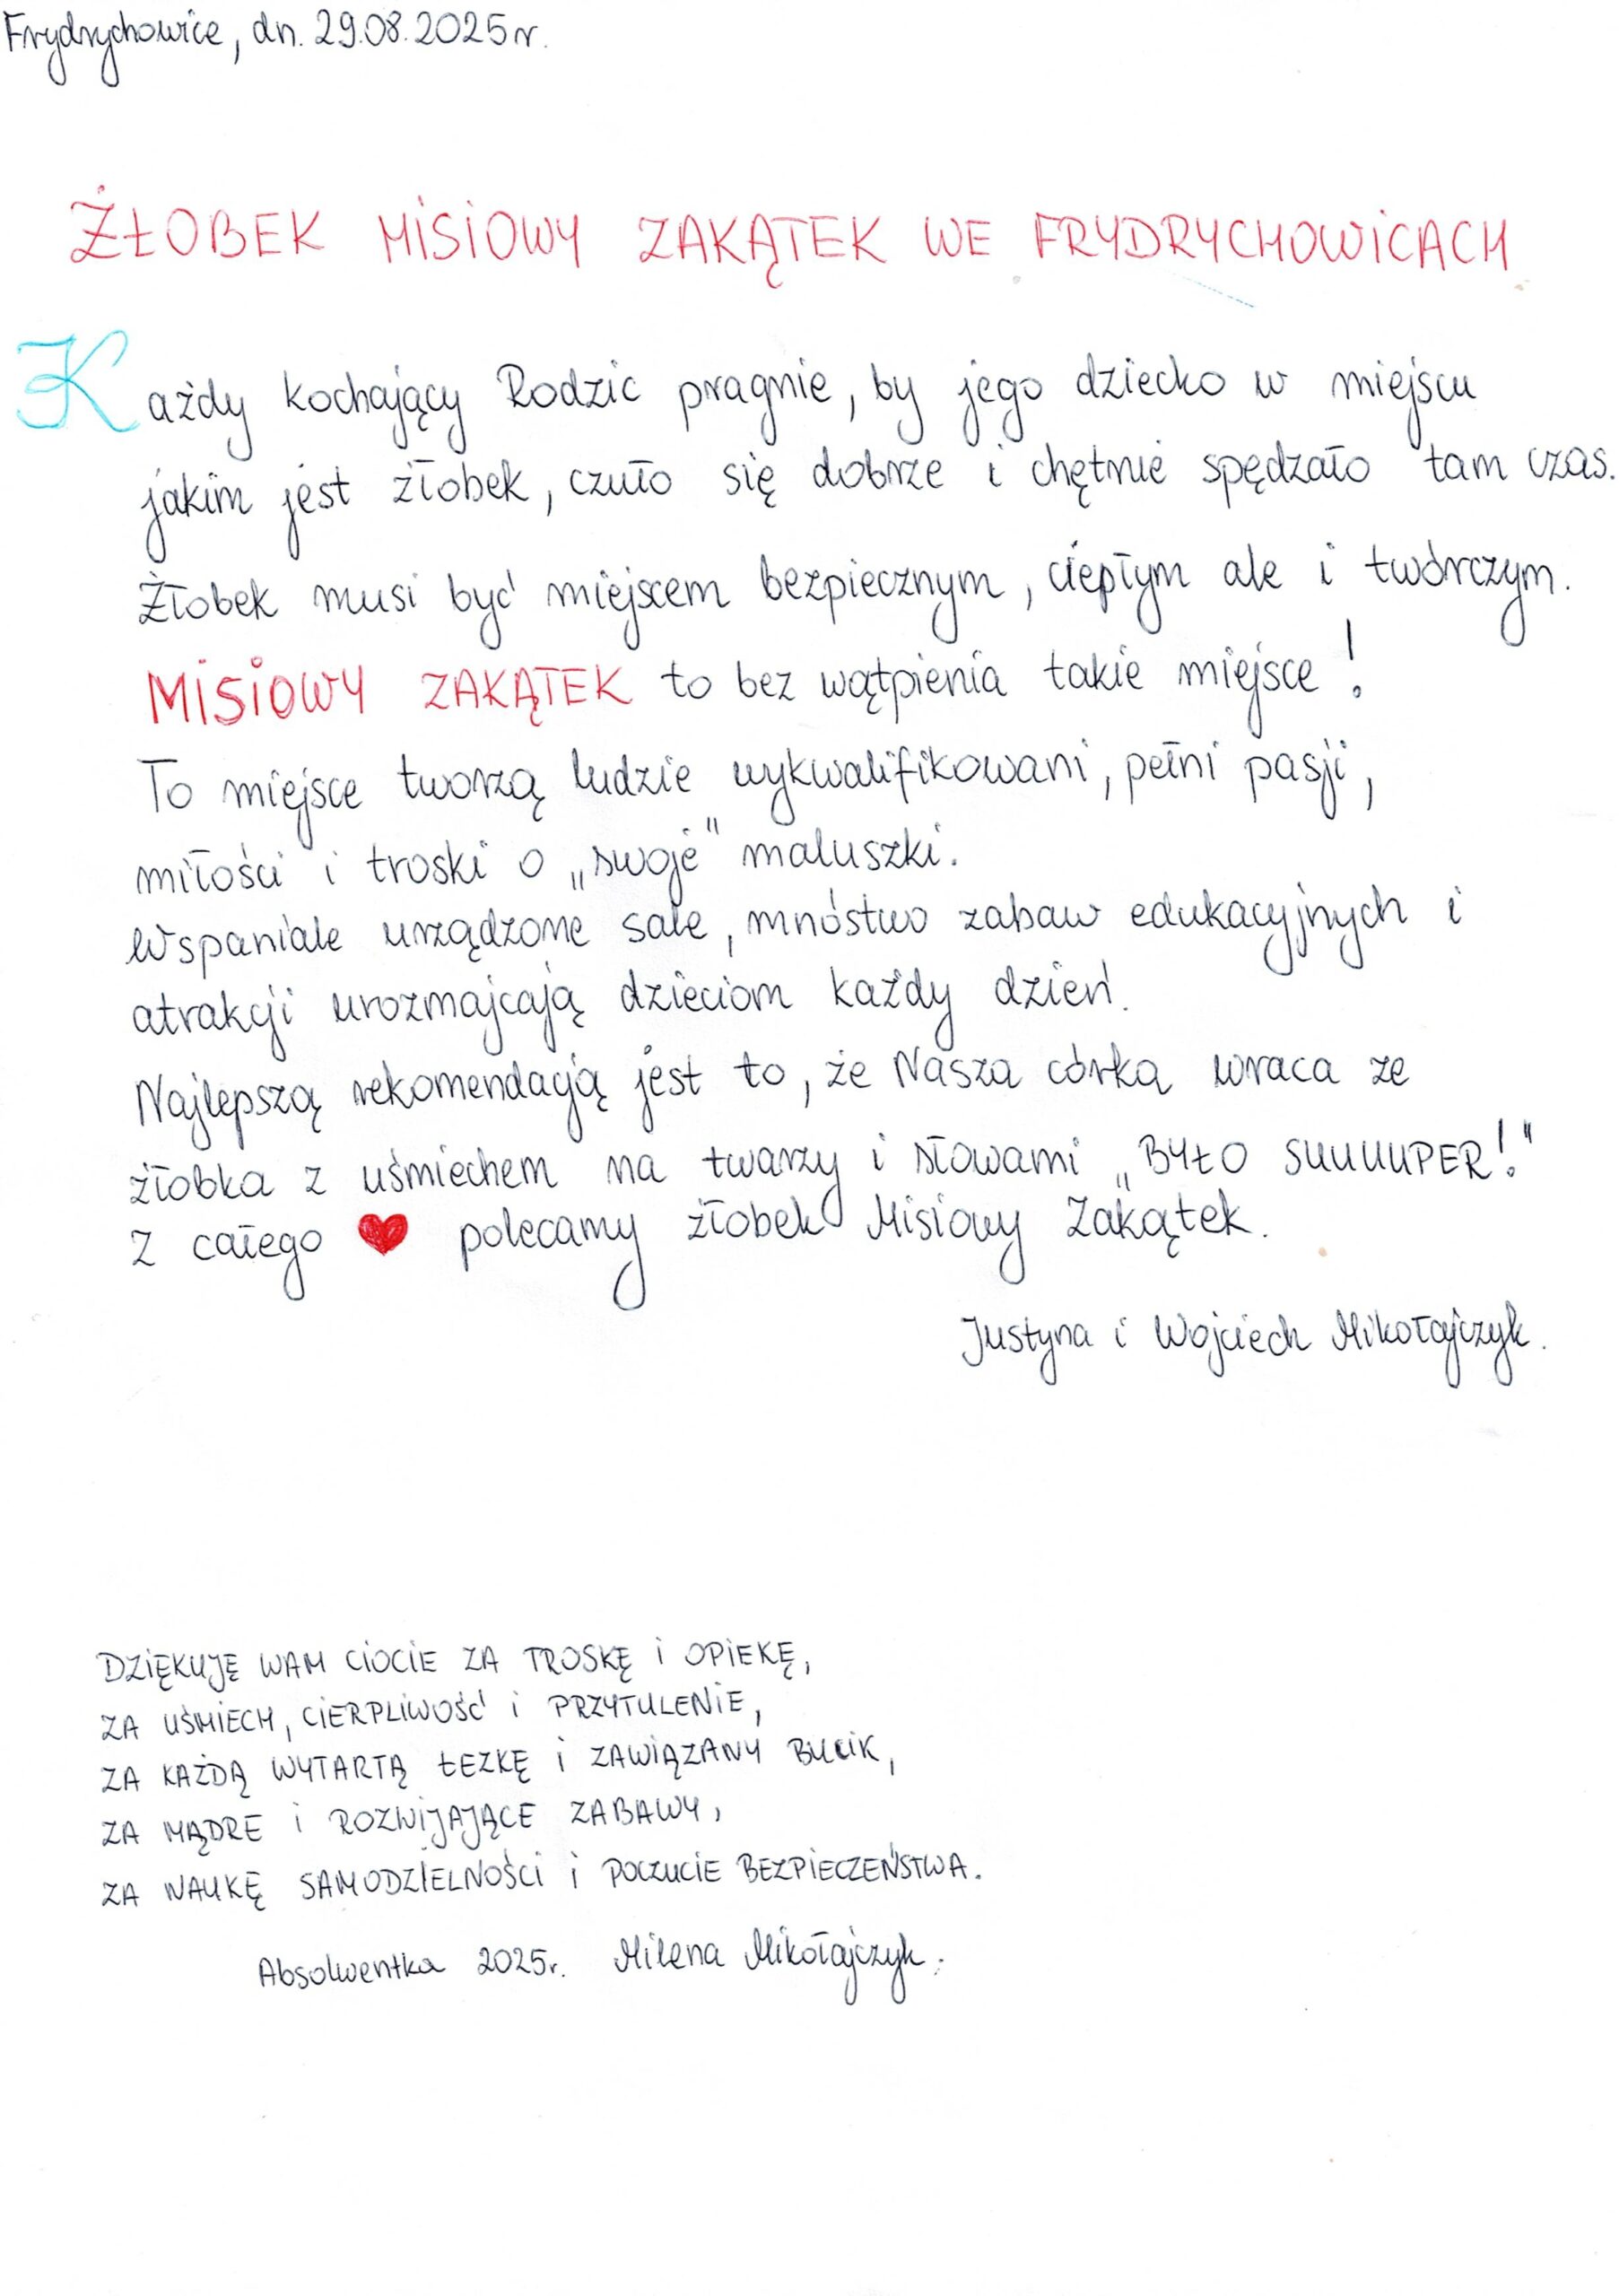 Frydrychowice, dn. 29.08.2025 r.
ŻŁOBEK MISIOWY ZAKĄTEK WE FRYDRYCHOWICACH
Każdy kochający Rodzic pragnie, by jego dziecko w miejscu
jakim jest żłobek, czuło się dobrze i chętnie spędzało tam czas.
Żłobek musi być miejscem bezpiecznym, ciepłym ale i twórczym.
MISIOWY ZAKĄTEK to bez wątpienia takie miejsce!
To miejsce tworzą ludzie wykwalifikowani, pełni pasji,
miłości i troski o „swoje" maluszki.
Wspaniale urządzone sale, mnóstwo zabaw edukacyjnych i
atrakcji urozmajcają dzieciom każdy dzień.
Najlepszą rekomendacją jest to, że Nasza córka wraca ze
żłobka z uśmiechem na twarzy i słowami „BYŁO SUUUUPER!"
Z całego ❤ polecamy żłobek Misiowy Zakątek.
Justyna i Wojciech Mikołajczyk.
DZIĘKUJĘ WAM CIOCIE ZA TROSKĘ I OPIEKĘ,
ZA UŚMIECH, CIERPLIWOŚĆ I PRZYTULENIE,
ZA KAŻDĄ WYTARTĄ ŁEZKĘ I ZAWIĄZANY BUCIK,
ZA MĄDRE I ROZWIJAJĄCE ZABAWY,
ZA NAUKĘ SAMODZIELNOŚCI I POCZUCIE BEZPIECZEŃSTWA.
Absolwentka 2025r. Milena Mikołajczyk.